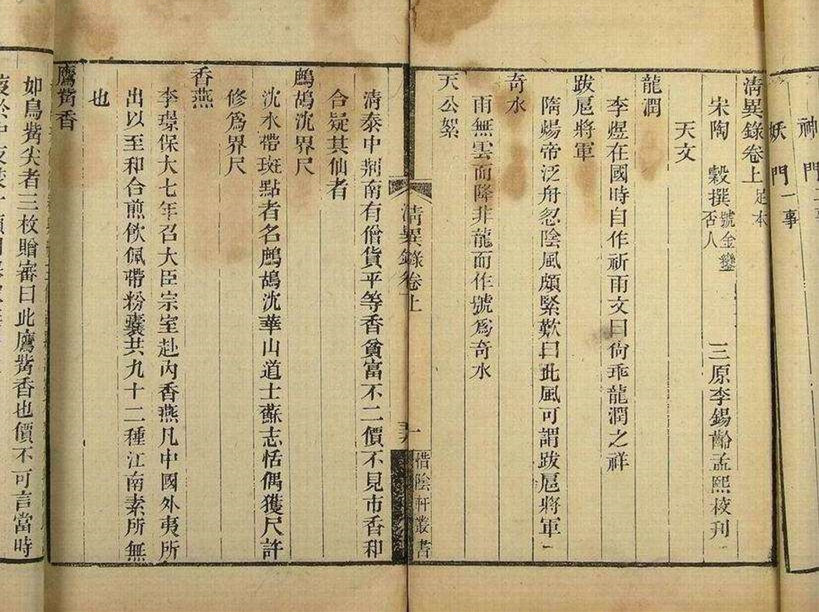 神門
妖門一事
清異錄卷上足本
宋陶 穀撰號金鑾否人 三原李錫齡孟熙校刊
天文
龍潤
李煜在國時自作祈雨文曰尙乖龍潤之祥
跋扈將軍
隋煬帝泛舟忽陰風頗緊歎曰此風可謂跋扈將軍
奇水
雨無雲而降非龍而作號爲奇水
天公絮
清異錄卷上
一
惜陰軒叢書
清泰中荆南有僧貨平等香貧富不二價不見市香和
合疑其仙者
鷓鴣沈界尺
沈水帶斑點者名鷓鴣沈華山道士蘇志恬偶獲尺許
修爲界尺
香燕
李璟保大七年召大臣宗室赴內香燕凡中國外夷所
出以至和合煎飲佩帶粉囊共九十二種江南素所無
也
鷹觜香
如鳥觜尖者三枚贈審曰此鷹觜香也價不可言當時